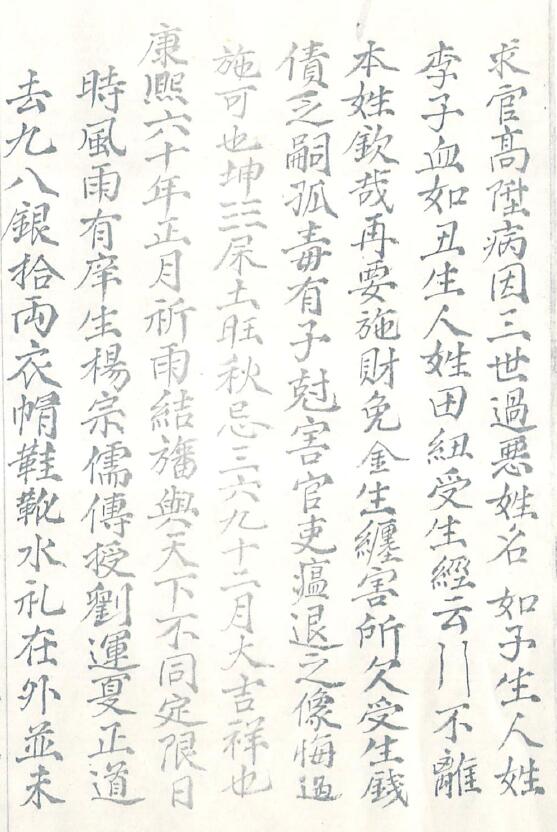 求官高陞病因三世過惡姓名 如子生人姓
李子血如丑生人姓田紐受生經云〢不離
本姓欽哉再要施財免金生纏害所欠受生錢
債乏嗣孤毒有子尅害官吏瘟退之像悔過
施可也坤☷屎土旺秋忌三六九十二月大吉祥也
康熙六十年正月祈雨結旛與天下不同定限日
時風雨有庠生楊宗儒傳授劉運夏正道
去九八銀拾両衣帽鞋靴水礼在外並未